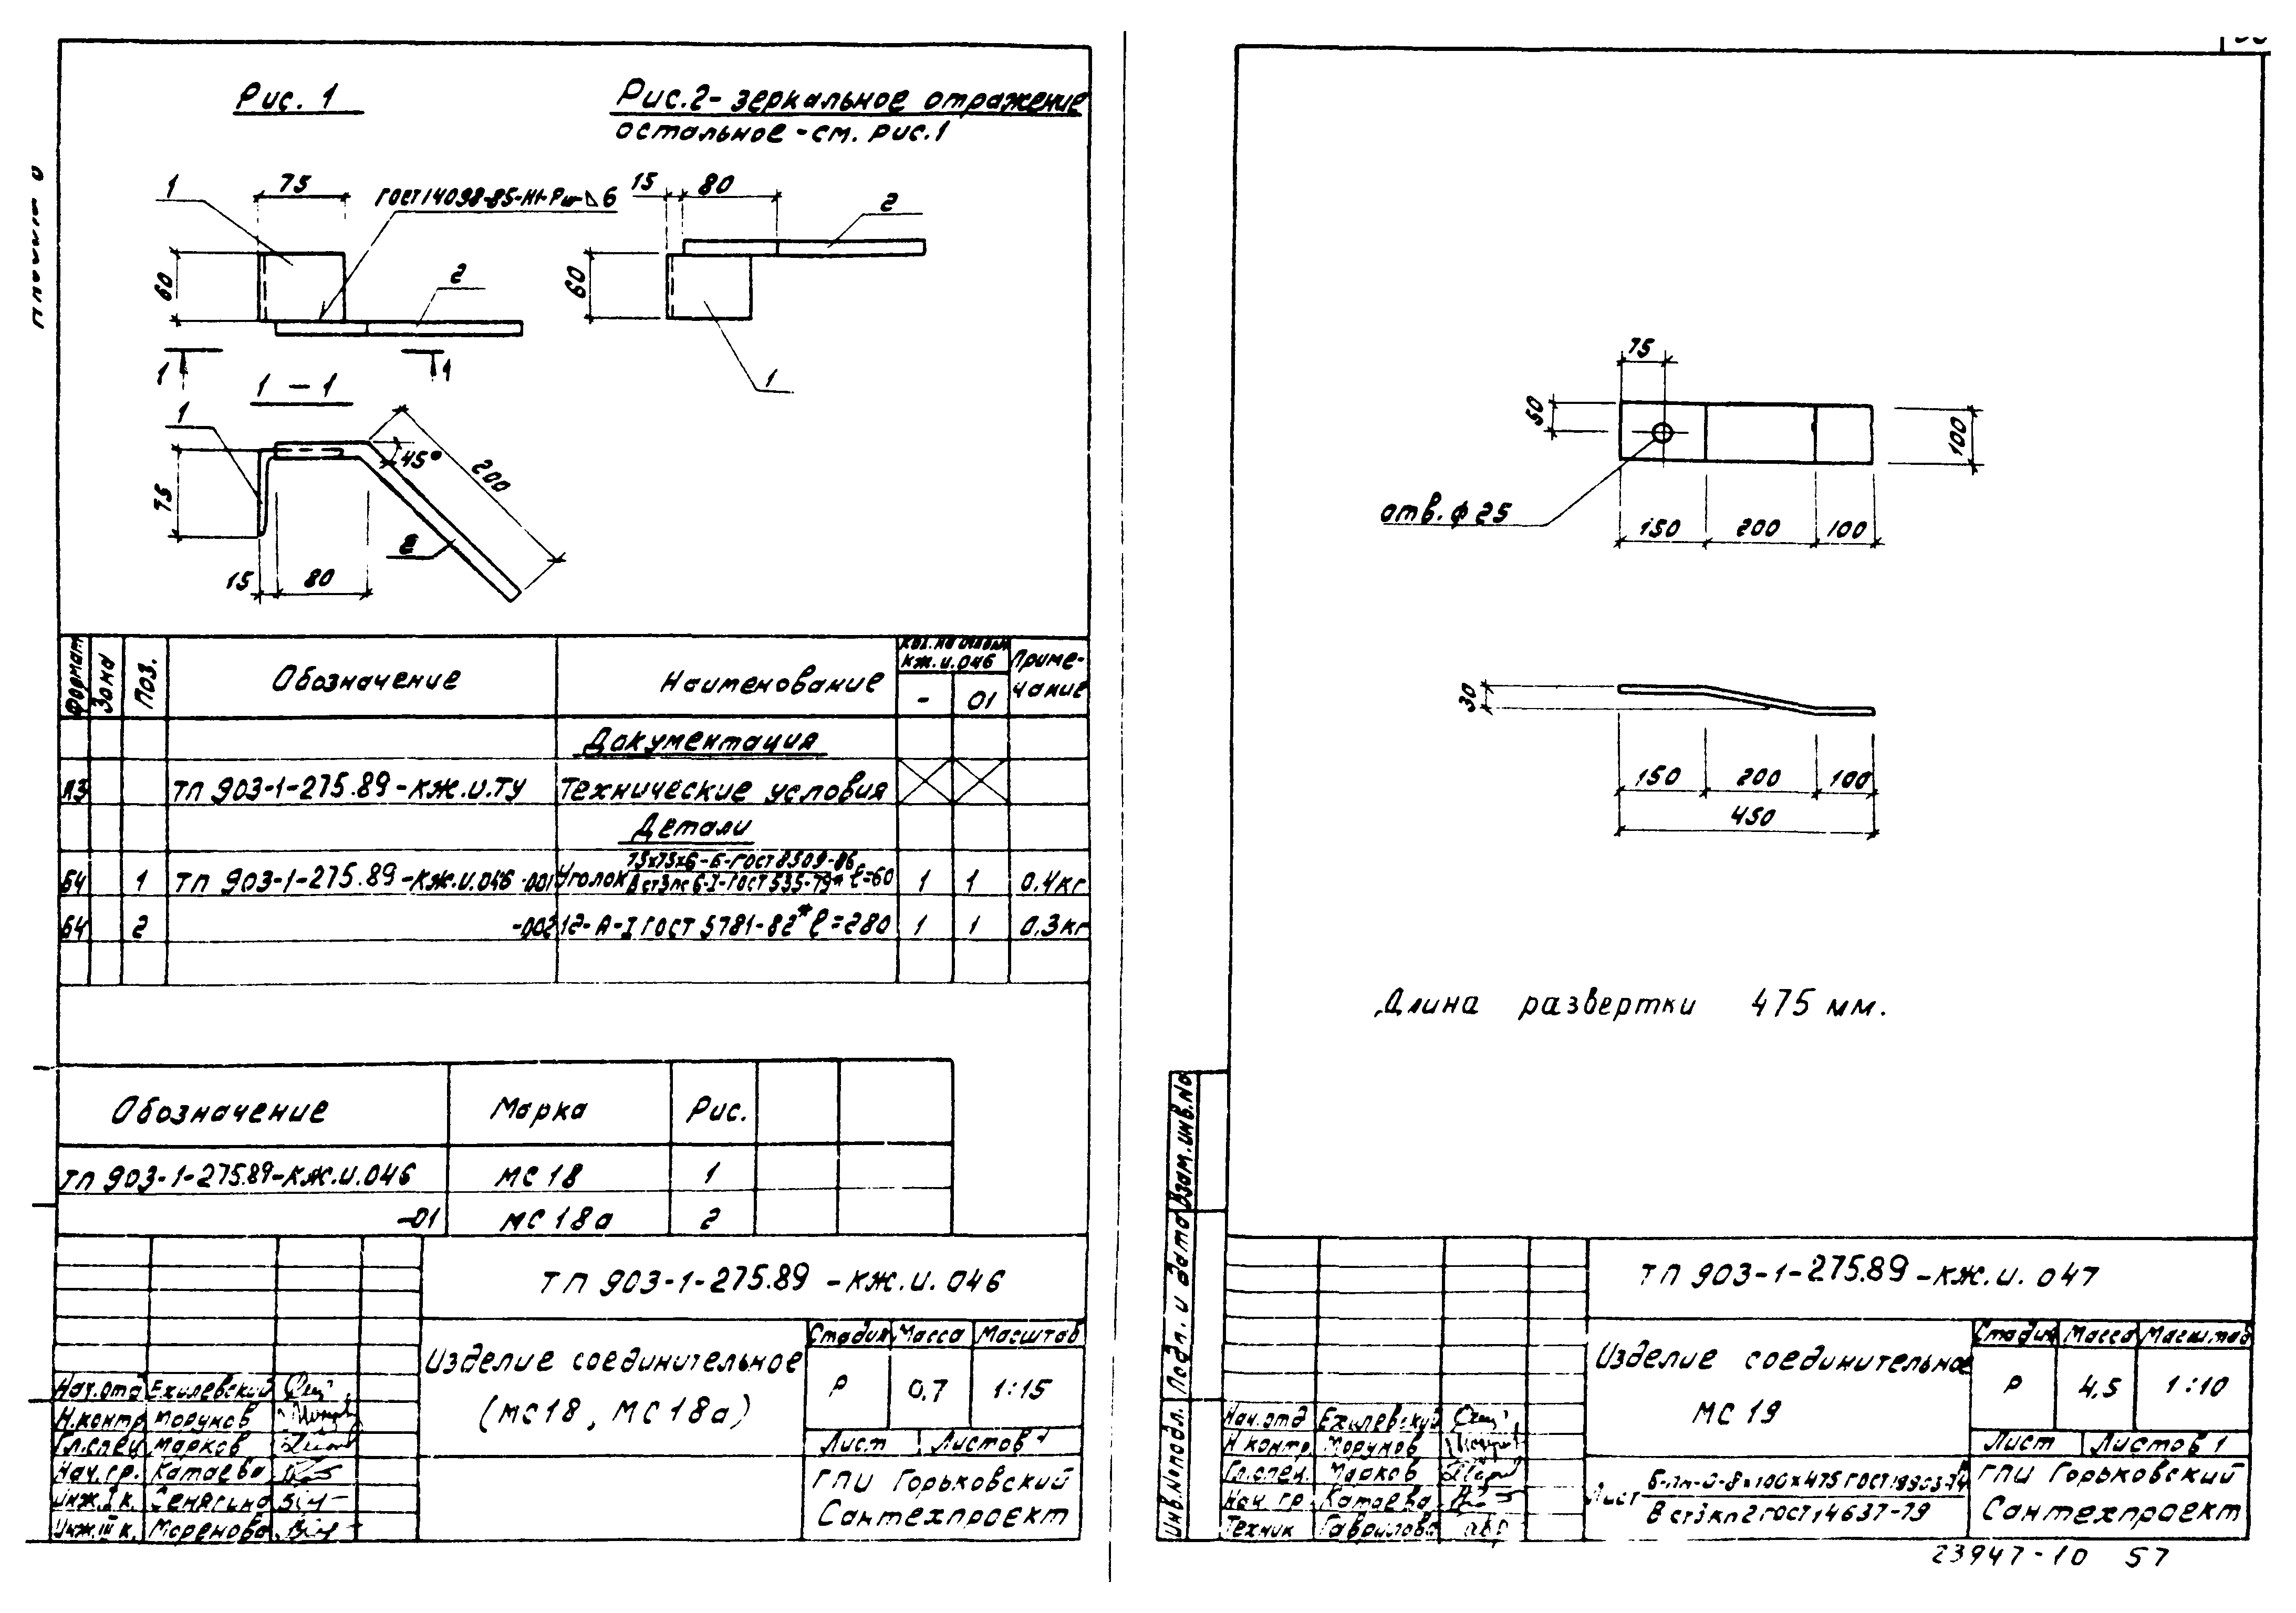 Рис. 1
Рис.2- зеркальное отражение
остальное - см. рис.1
1
75
ГОСТ14098-85-Н1-Рш-⊿6
60
2
1
1
15
80
2
60
1
1 - 1
1
75
45°
200
2
15
80
Формат
Зона
Поз.
Обозначение
Наименование
КЖ.И.046
-
01
Приме-
чание
Документация
А3
ТП 903-1-275.89-КЖ.И.ТУ
Технические условия
Детали
БЧ
1
ТП 903-1-275.89-КЖ.И.046-001
Уголок 75х75х6-Б-ГОСТ 8509-86
Вст3пс6-I-ГОСТ 535-79* ℓ=60
1
1
0,4кг
БЧ
2
-002
12-А-I ГОСТ 5781-82* ℓ=280
1
1
0,3кг
Обозначение
Марка
Рис.
ТП 903-1-275.89-КЖ.И.046
МС 18
1
-01
МС 18а
2
ТП 903-1-275.89-КЖ.И.046
Изделие соединительное
(МС18, МС18а)
Стадия
Масса
Масштаб
Р
0,7
1:15
Лист
Листов 1
ГПИ Горьковский
Сантехпроект
Нач.отд
Ехилевский
Н.контр
Морунов
Гл.спец
Марков
Нач.гр.
Катаева
Инж. I к.
Инж. III к.
Моренова
75
50
100
отв. ф25
150
200
100
30
150
200
100
450
Длина развертки 475 мм.
Взам.инв.No
Подп. и дата
Инв.No подл.
ТП 903-1-275.89-КЖ.И.047
Изделие соединительное
МС 19
Стадия
Масса
Масштаб
Р
4,5
1:10
Лист
Листов 1
Лист Б-ПН-О-8х100х475 ГОСТ 19903-74
В ст3кп2 ГОСТ 14637-79
ГПИ Горьковский
Сантехпроект
Нач.отд
Ехилевский
Н.контр.
Морунов
Гл.спец.
Марков
Нач.гр.
Катаева
Техник
Гаврилова
23947-10 57